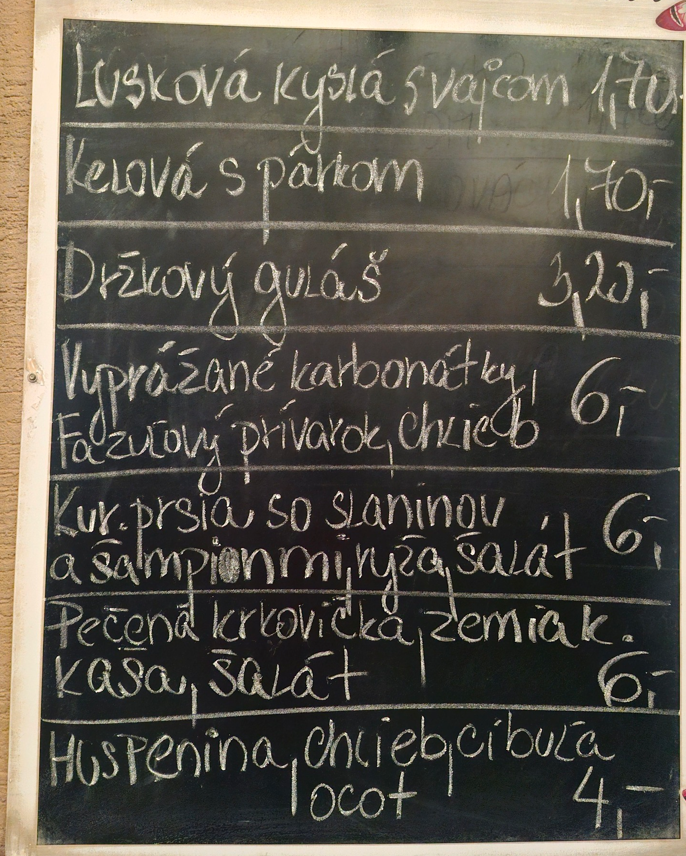 Lusková kyslá s vajcom 1,70,-
Kelová s párkom 1,70,-
Držkový guláš 3,20,-
Vyprážané karbonátky, 6,-
Fazuľový prívarok, chlieb
Kur. prsia so slaninov 6,-
a šampionmi, ryža, šalát
Pečená krkovička, zemiak.
kaša, šalát 6,-
Huspenina, chlieb, cibuľa
, ocot 4,-